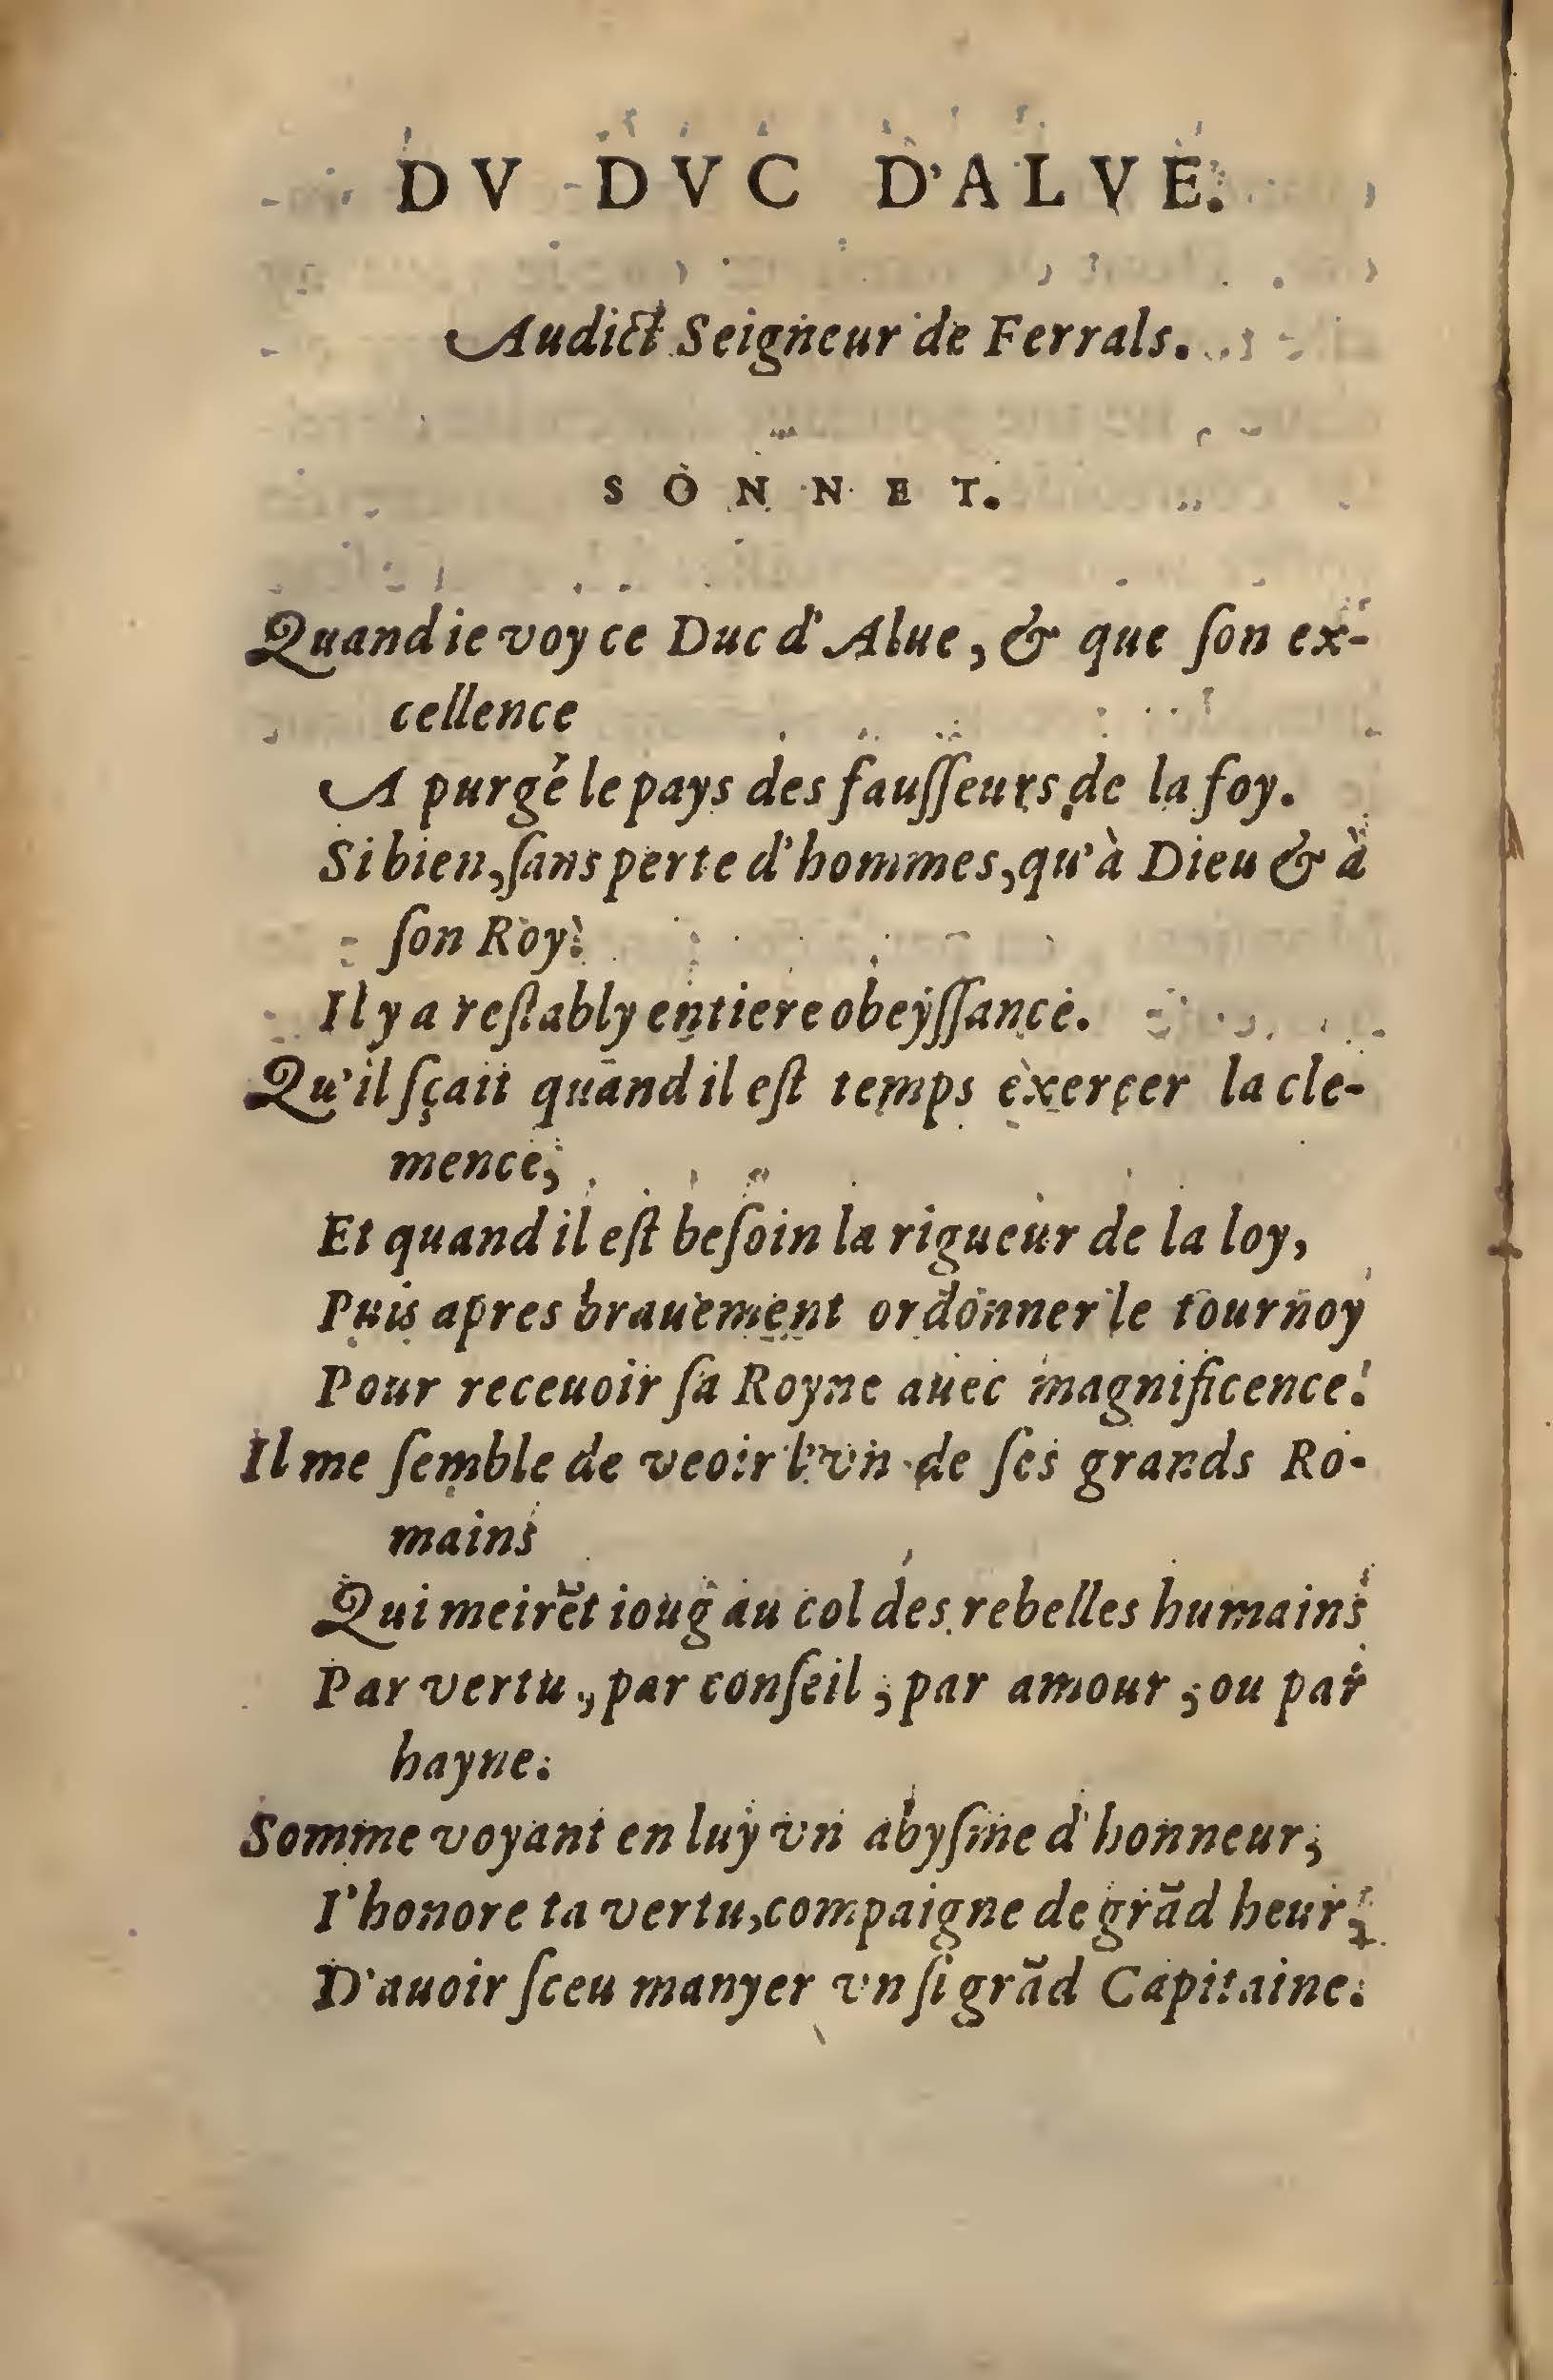 DV DVC D'ALVE.
Audict Seigneur de Ferrals.
SONNET.
Quand ie voy ce Duc d'Alue, & que ſon ex-
cellence
A purgé le pays des fauſſeurs de la foy.
Si bien, ſans perte d'hommes, qu'à Dieu & à
ſon Roy.
Il y a reſtably entiere obeyſſance.
Qu'il ſçait quand il eſt temps exerçer la cle-
mence,
Et quand il eſt beſoin la rigueur de la loy,
Puis apres brauement ordonner le tournoy
Pour receuoir ſa Royne auec magnificence.
Il me ſemble de veoir l'vn de ſes grands Ro-
mains
Qui meirẽt ioug au col des rebelles humains
Par vertu, par conſeil, par amour, ou par
hayne.
Somme voyant en luy vn abyſme d'honneur,
I'honore ta vertu, compaigne de grãd heur,
D'auoir ſceu manyer vn ſi grãd Capitaine.